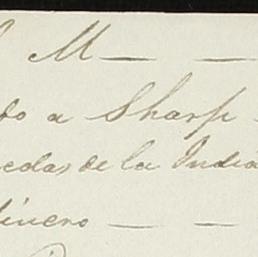 M — —
do a Sharp
edas de la India
dinero — —